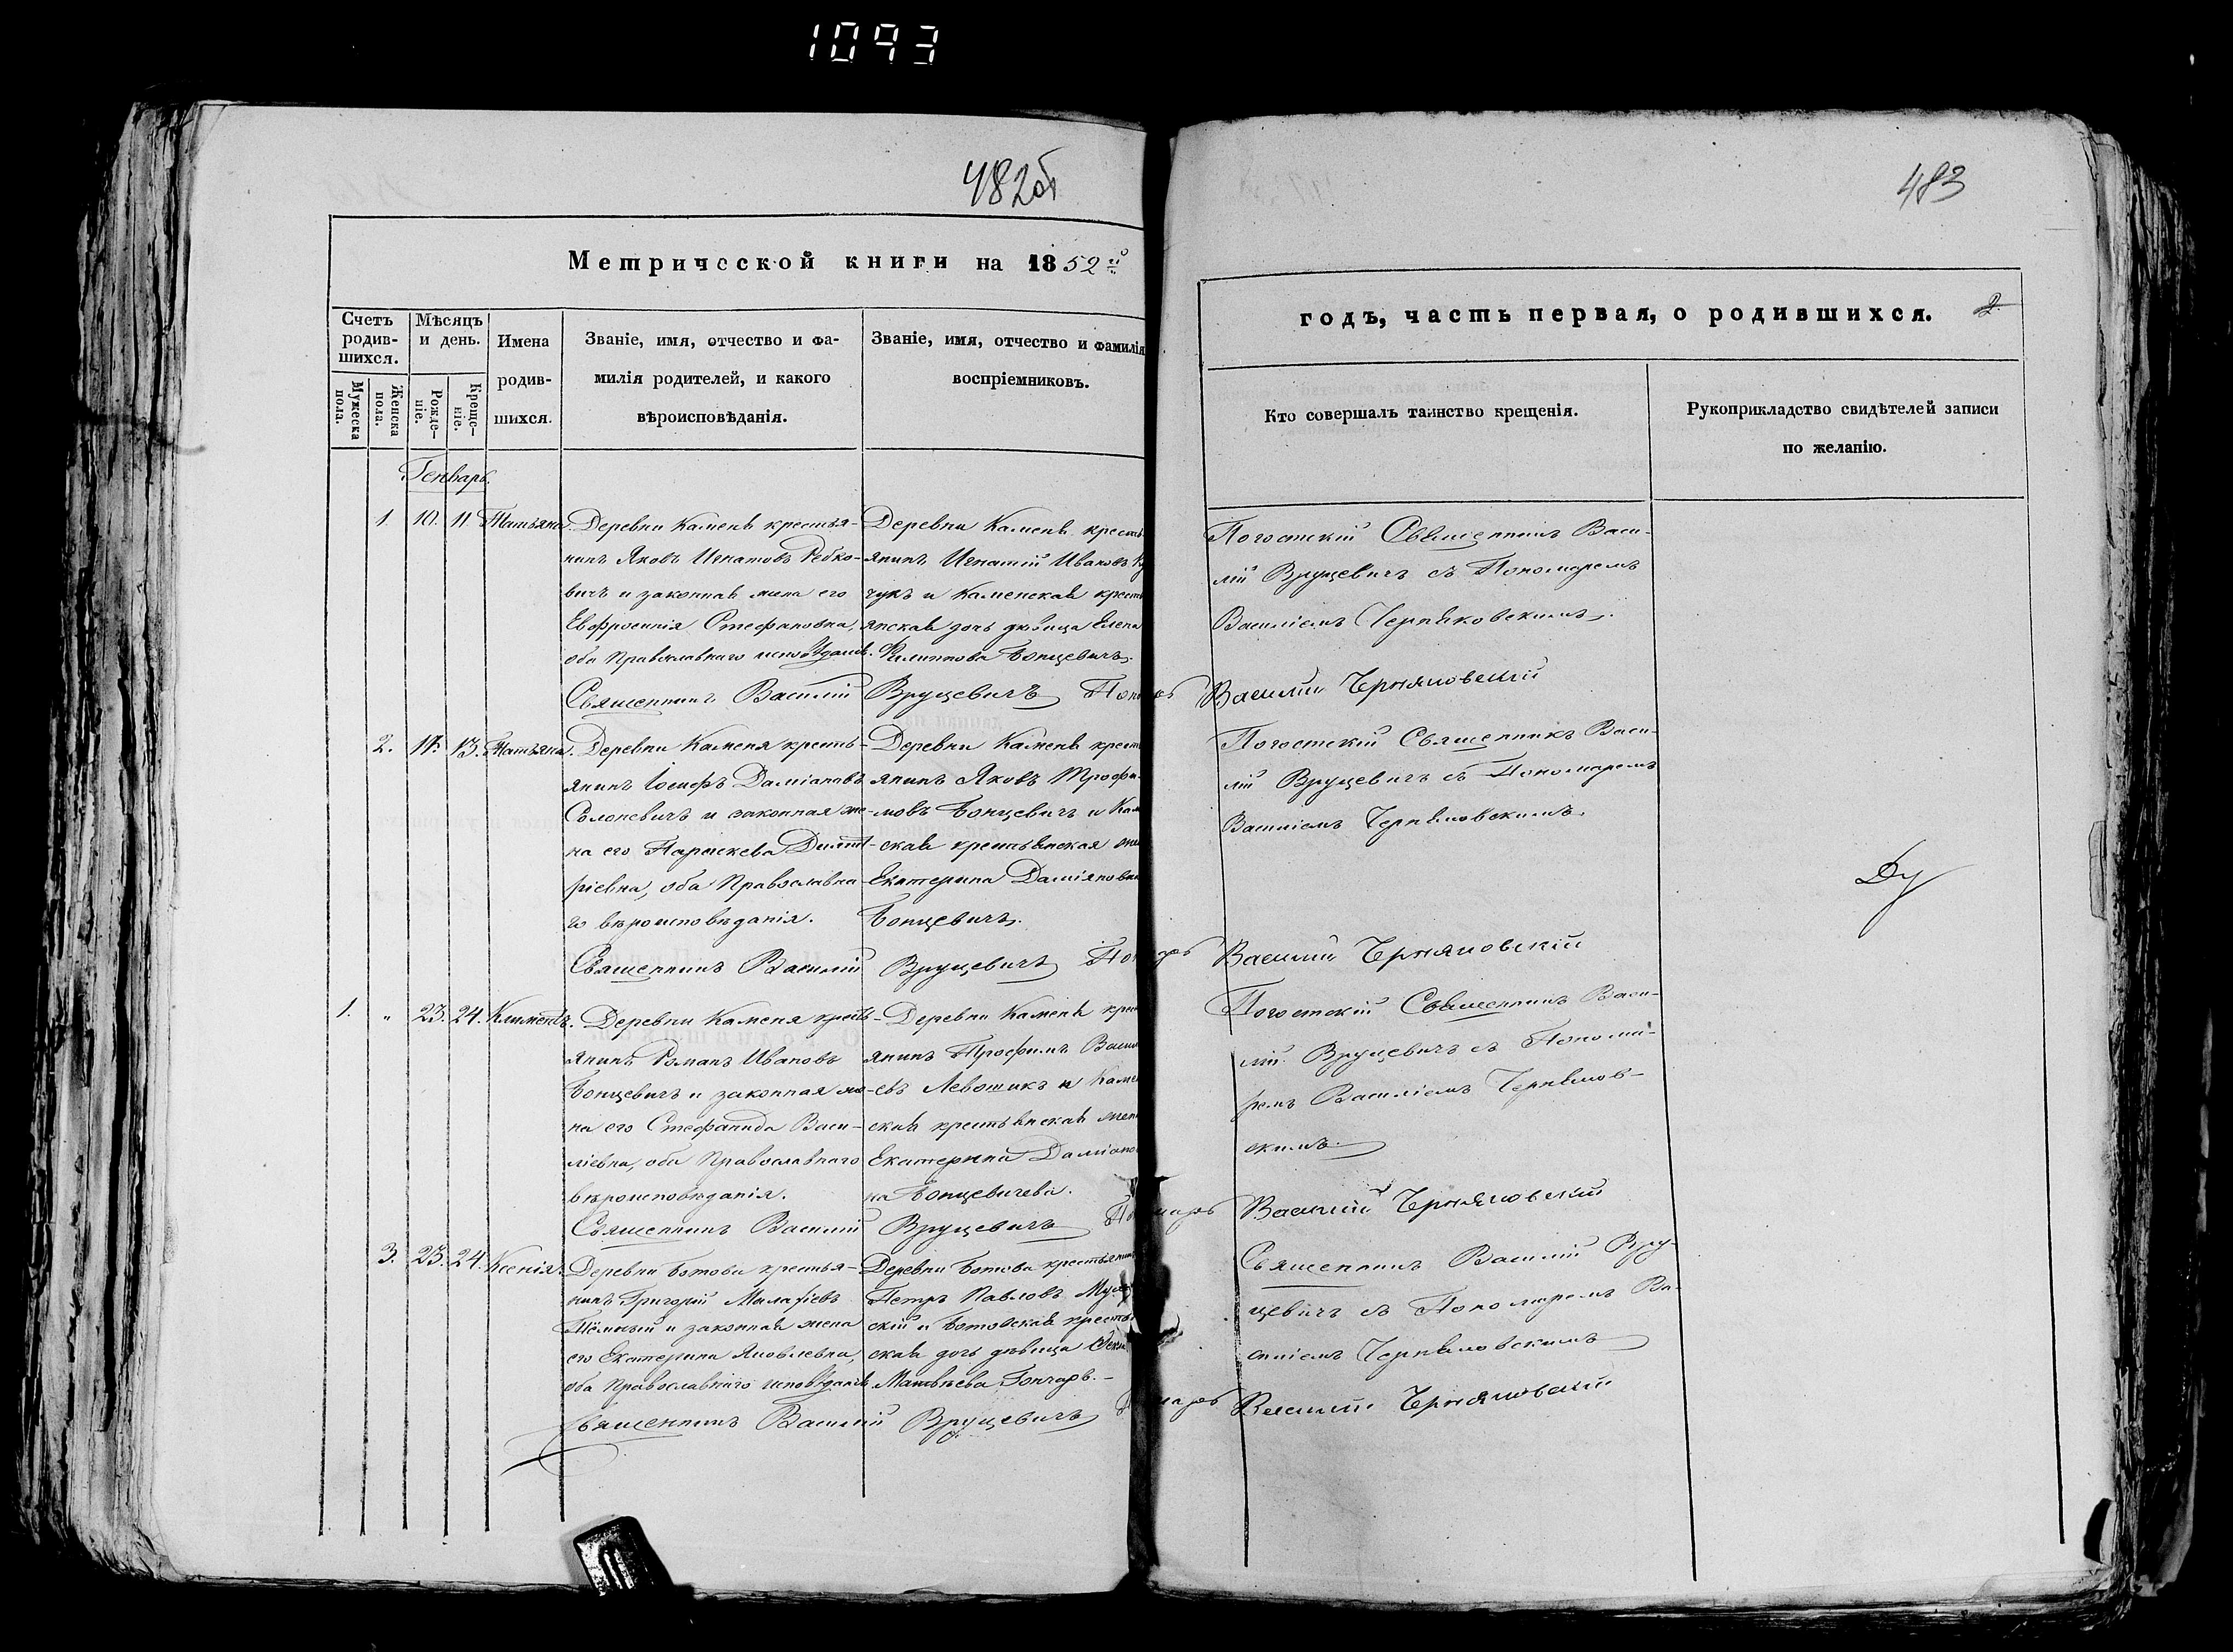 1093
482об
483
Метрической книги на 1852й
годъ, часть первая, о родившихся. 2
Счетъ родив-шихся.
Мужеска пола.
Женска пола.
Мѣсяцъ и день.
Рожде-ніе.
Креще-ніе.
Имена
родив-
шихся.
Званіе, имя, отчество и фа-
милія родителей, и какого
вѣроисповѣданія.
Званіе, имя, отчество и фамилія
воспріемниковъ.
Кто совершалъ таинство крещенія.
Рукоприкладство свидѣтелей записи
по желанію.
Генварь.
1 10. 11 Татьяна.
Деревни Каменя крестья-
нинъ Яковъ Игнатовъ
вичъ и законная жена его
Евфросинія Стефановна,
оба православнаго исповѣданія.
Деревни Каменя кресть
янинъ Игнатій Ивановъ
чукъ и Каменская крест
янская дочь дѣвица Елена
Филиппова Бонцевичъ.
Погостскій Священникъ Васи-
лій Вруцевичъ съ Пономаремъ
Василіемъ Черняковскимъ.
Священникъ Василій Вруцевичъ
Василій Черняковскій
2. 11. 13. Татьяна.
Деревни Каменя кресть-
янинъ Іосифъ Даміановъ
Солоневичъ и законная же-
на его Параскева Димит-
ріевна, оба Православна-
го вѣроисповѣданія.
Деревни Каменя крест
янинъ Яковъ Трофи-
мовъ Бонцевичъ и Кам
ская крестьянская
Екатерина Даміяновна
Бонцевичъ.
Погостскій Священникъ Васи-
лій Вруцевичъ съ Пономаремъ
Василіемъ Черняковскимъ.
Священникъ Василій Вруцевичъ
Василій Черняковскій
1. " 23. 24. Климентъ.
Деревни Каменя кресть-
янинъ Романъ Ивановъ
Бонцевичъ и законная же-
на его Стефанида Васи-
ліевна, оба Православнаго
вѣроисповѣданія.
Деревни Каменя крес
янинъ Трофимъ Васи
евъ Левошикъ и Камен
ская крестьянская жена
Екатерина Даміанов
на Бонцевичева.
Погостскій Священникъ Васи-
лій Вруцевичъ съ Понома-
ремъ Василіемъ Черняков-
скимъ.
Священникъ Василій Вруцевичъ
Василій Черняковскій
3. 23. 24. Ксенія.
Деревни Ботова крестья-
нинъ Григорій Малафіевъ
Тёмный и законная жена
его Екатерина Яковлевна,
оба Православнаго исповѣданія
Деревни Ботова крестьянинъ
Петръ Павловъ
скій и Ботовская кресть
ская дочь дѣвица
Матвѣева Гончаръ.-
Священникъ Василій Вру-
цевичъ съ Пономаремъ Ва-
силіемъ Черняковскимъ
Священникъ Василій Вруцевичъ
Василій Черняковскій